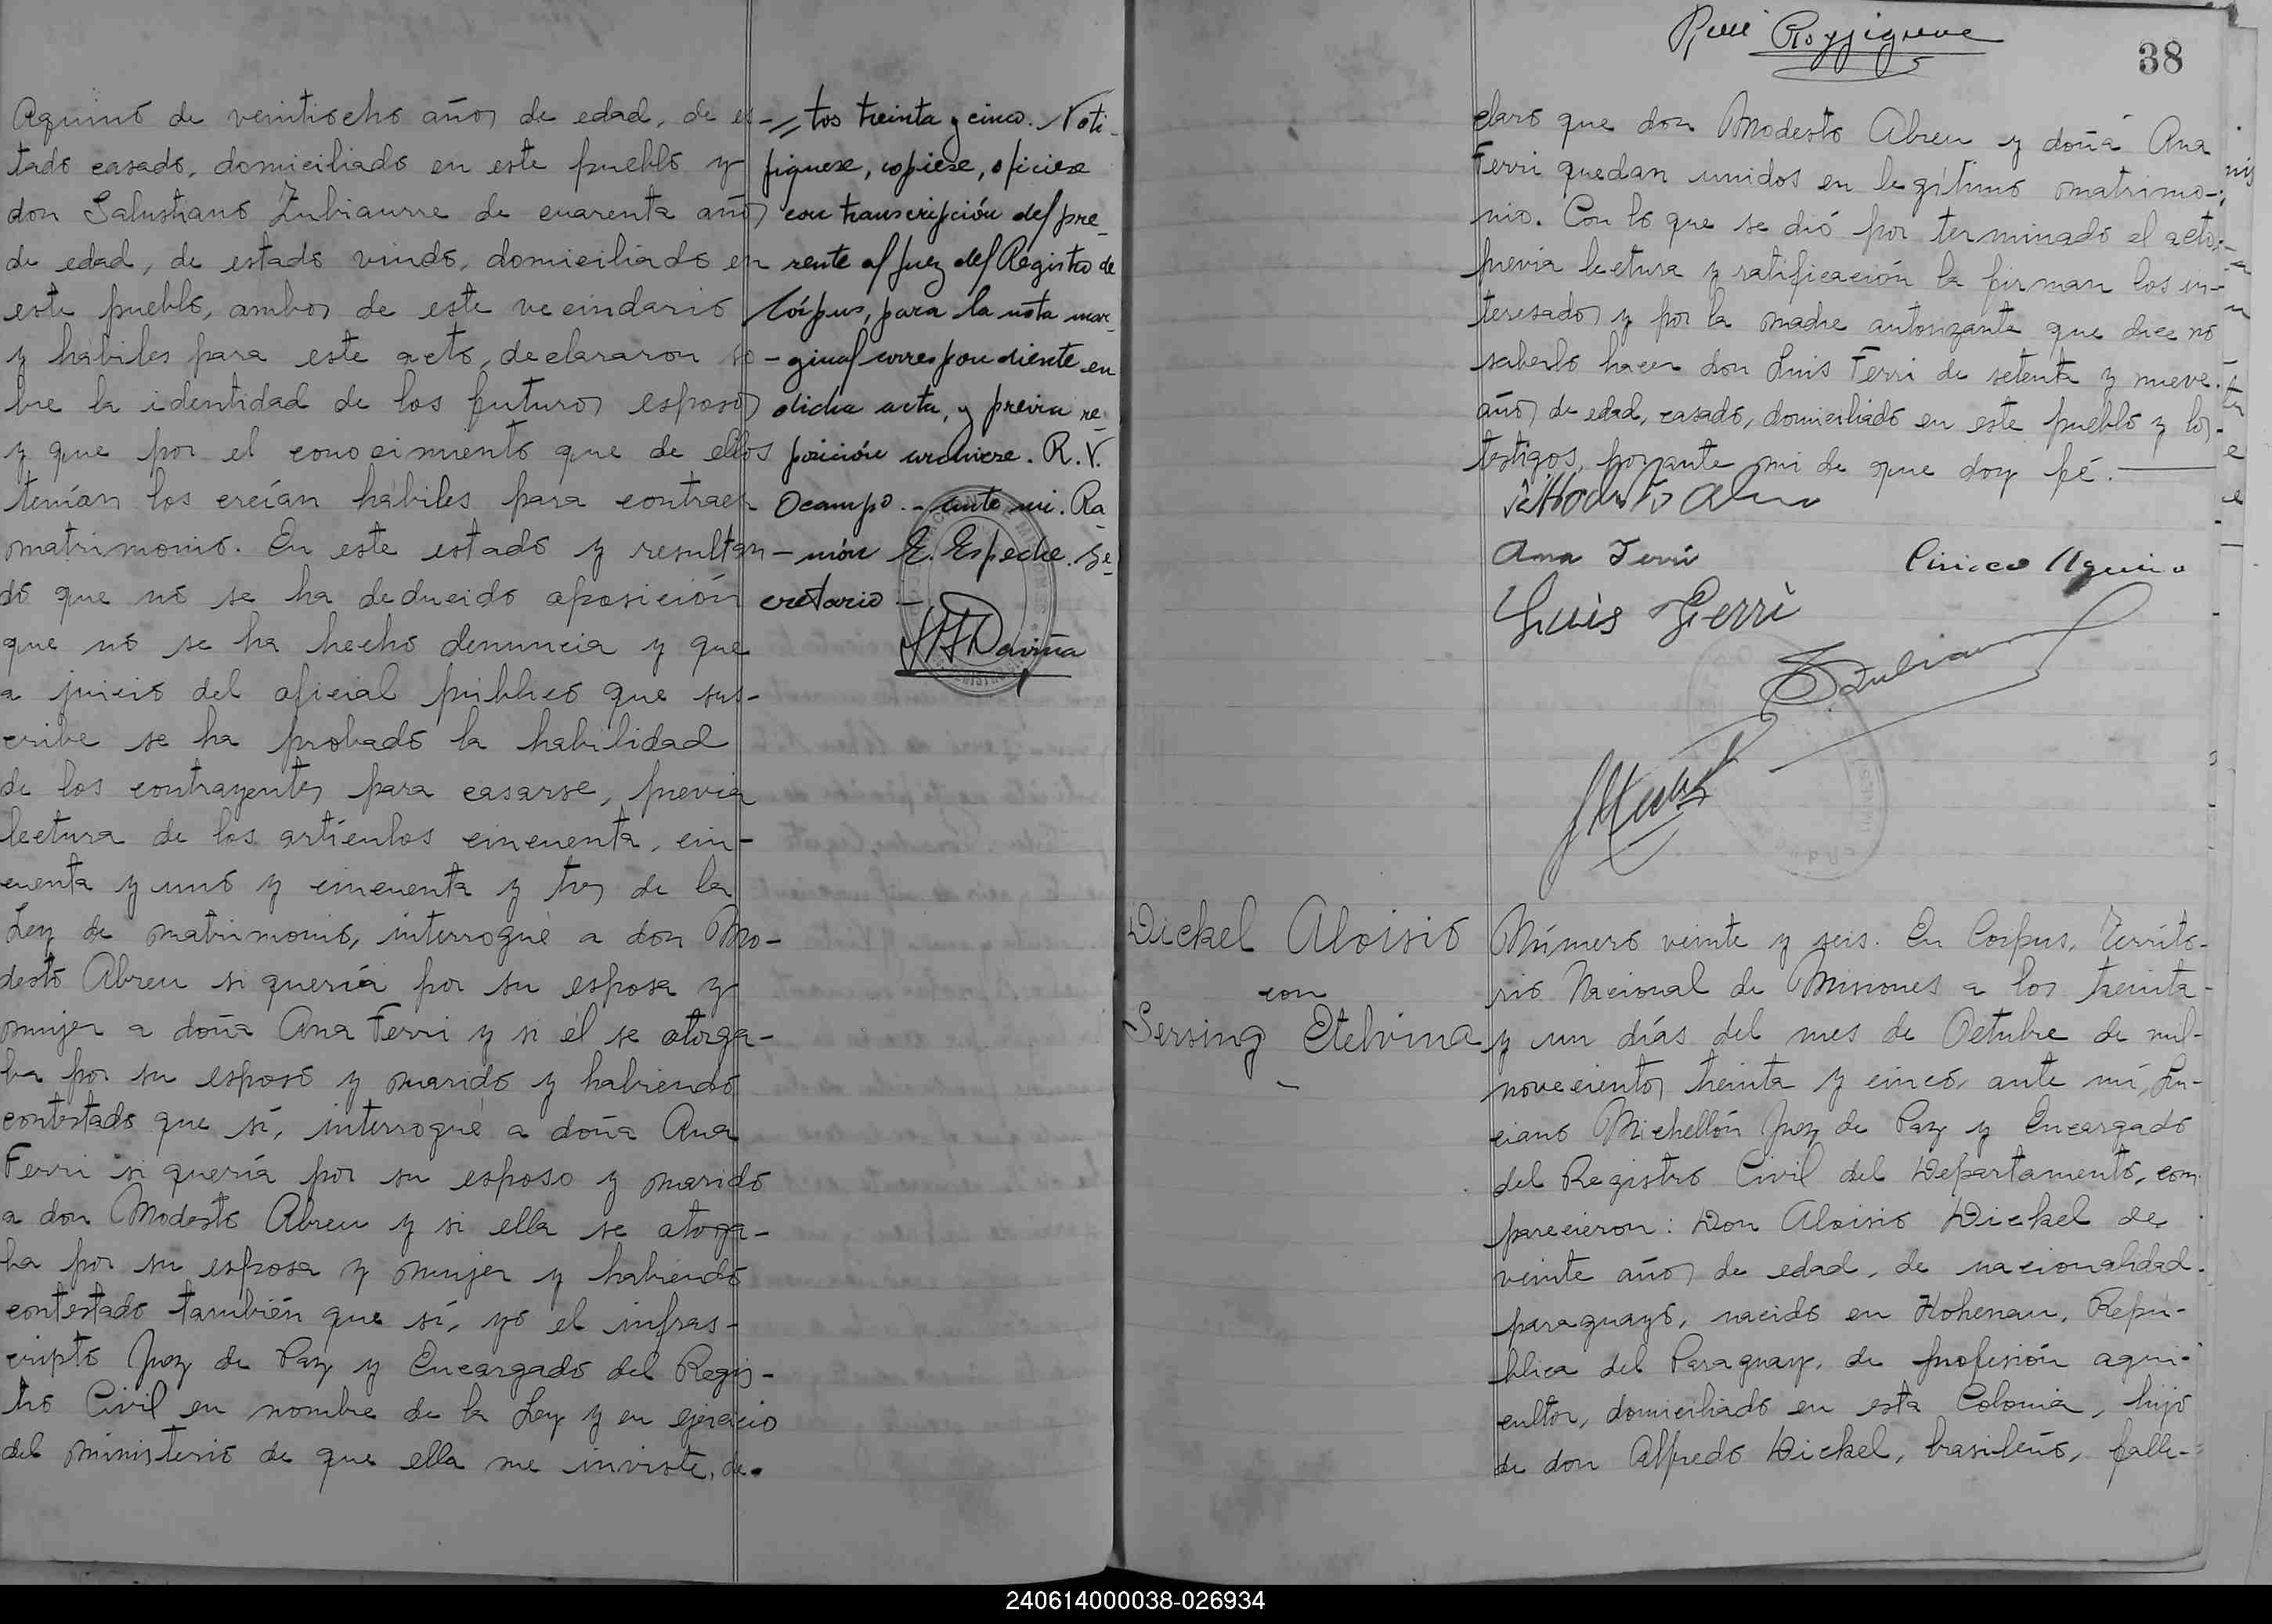 Aquino de veintiocho años de edad, de es-
tado casado, domiciliado en este pueblo y
don Salustiano Zubiaurre de cuarenta años
de edad, de estado viudo, domiciliado en
este pueblo, ambos de este vecindario
y hábiles para este acto, declararon so-
bre la identidad de los futuros esposos
y que por el conocimiento que de ellos
tenían los creían hábiles para contraer
matrimonio. En este estado y resultan-
do que no se ha deducido oposición
que no se ha hecho denuncia y que
a juicio del oficial público que sus-
cribe se ha probado la habilidad
de los contrayentes para casarse, previa
lectura de los artículos cincuenta, cin-
cuenta y uno y cincuenta y tres de la
Ley de matrimonio, interrogué a don Mo-
desto Abreu si quería por su esposa y
mujer a doña Ana Ferri y si él se otorga-
ba por su esposo y marido y habiendo
contestado que sí, interrogué a doña Ana
Ferri si quería por su esposo y marido
a don Modesto Abreu y si ella se otorga-
ba por su esposa y mujer y habiendo
contestado también que sí, yo el infras-
cripto Juez de Paz y Encargado del Regis-
tro Civil en nombre de la Ley y en ejercicio
del ministerio de que ella me inviste, de-
-//tos treinta y cinco. Noti-
fiquese, copiese, oficiese
con transcripción del pre-
sente al Juez del Registro de
Córpus, para la nota mar-
ginal correspondiente en
dicha acta, y previa re-
posición archivese. R. V.
Ocampo.- ante mi. Ra-
món E. Espeche. Se-
cretario.-
Daviña
38
claro que don Modesto Abreu y doña Ana
Ferri quedan unidos en legítimo matrimo-
nio. Con lo que se dió por terminado el acto;
previa lectura y ratificación la firman los in-
teresados y por la madre autorizante que dice no
saberlo hacer don Luis Ferri de setenta y nueve
años de edad, casado, domiciliado en este pueblo y los
testigos, por ante mi de que doy fé.
Modesto Abreu
Ana Ferri
Ciriaco Aquino
Luis Ferri
Dickel Aloisio
con
Sersing Etelvina
Número veinte y seis. En Corpus, Territo-
rio Nacional de Misiones a los treinta
y un días del mes de Octubre de mil-
novecientos treinta y cinco, ante mí, Lu-
ciano Michellón Juez de Paz y Encargado
del Registro Civil del Departamento, com-
parecieron: Don Aloisio Dickel de
veinte años de edad, de nacionalidad
paraguayo, nacido en Hohenau, Repú-
blica del Paraguay, de profesión agri-
cultor, domiciliado en esta Colonia, hijo
de don Alfredo Dickel, brasileño, falle-
240614000038-026934